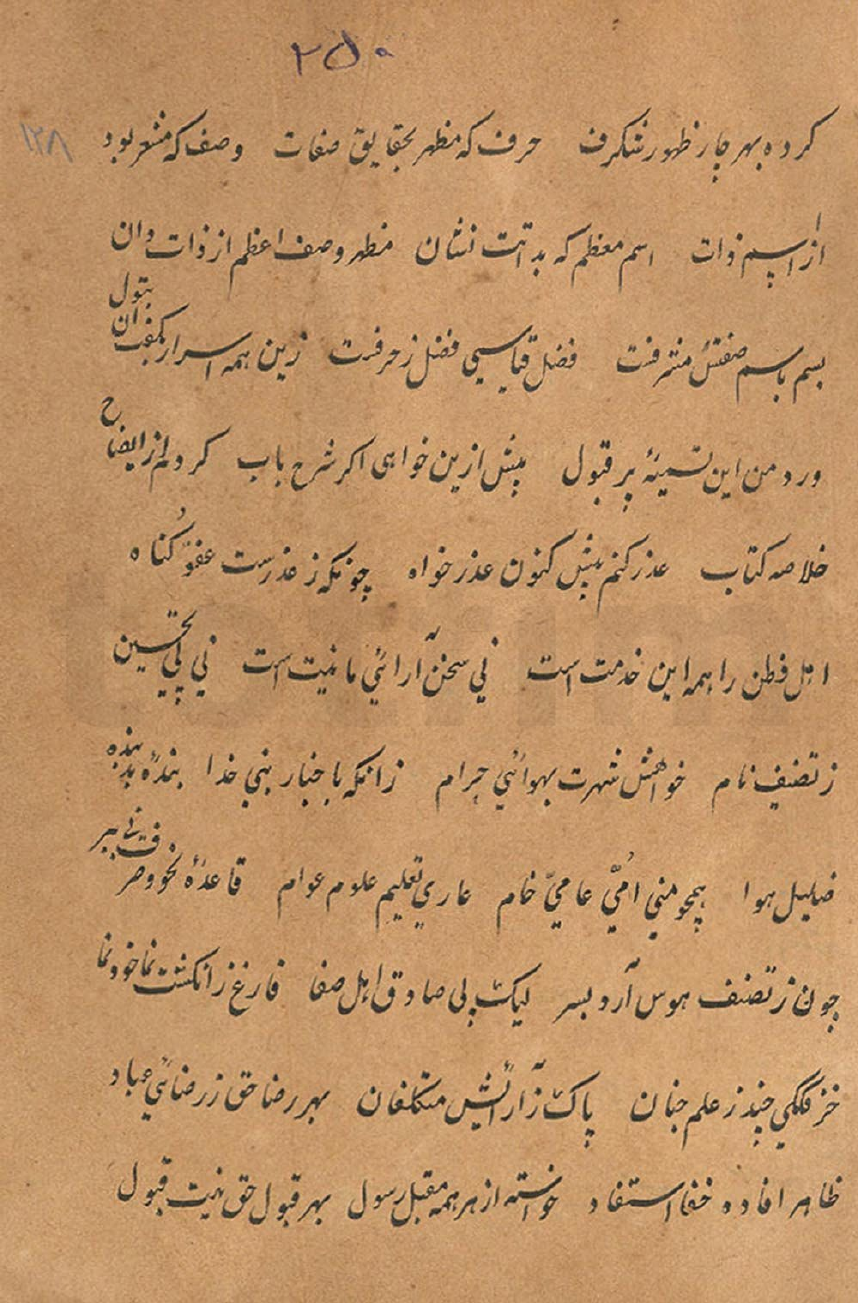 ۲۵۰
۱۲۸
کرده بهر چار ظهور شگرف حرف که مظهر بحقایق صفات وصف که مشعر بود
از اسم ذات اسم معظم که بذاتت نشان مظهر وصف اعظم از ذات دان
بسم باسم صفتش منتفست فضل قیاسی فضل ز حرفست زین همه اسرار بگفت آن بتول
ورد من این تسمیهٔ پر قبول پیش ازین خواهی اکر شرح باب کردم از ایضاح
خلاصه کتاب عذر کنم پیش کنون عذر خواه چونکه ز عذرست عفوِّ کُناه
اهل فطن را همه این خدمت است نی سخن آرائی ما نیت است نی پی تحسین
ز تصنیف نام خواهش شهرت بهوائی حرام زانکه باخبار نبی خدا بندهٔ بد بنده
ضلیل هوا همچو منی اُمیّ عامیّ خام عاری تعلیم علوم عوام قاعدهٔ نحو و صرفت نی ببر
چون ز تصنف هوس آرد بسر لیک پی صادق اهل صفا فارغ ز انکشت نما خود نما
چند ز علم جنان پاک ز آرایش متکلفان بهر رضا حق ز رضائی عباد
ظاهر افاده خفا استفاد خواسته از هر همه مقبل رسول بهر قبول حق نیت قبول